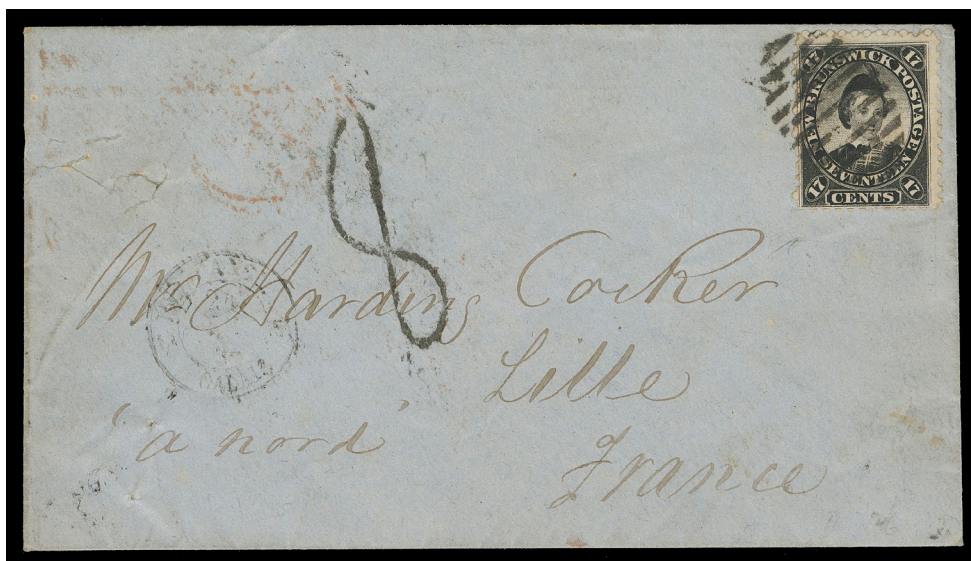 17 17
NEW BRUNSWICK POSTAGE
SEVENTEEN
17 CENTS 17
8
Mr Harding Cocker
Lille
"a nord"
France
CALAIS